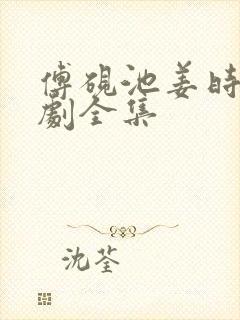 傅硯池姜時
劇全集
沈荃